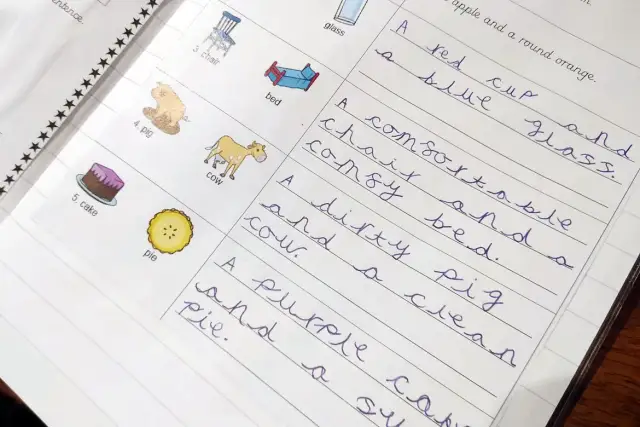 entence.
apple and a round orange.
glass
A red cup and
a blue glass.
3. chair
bed
A comsortable
chair and a
comsy bed.
4. pig
cow
A dirty pig
and a clean
cow.
5. cake
pie
A purple cak
and a
pie.